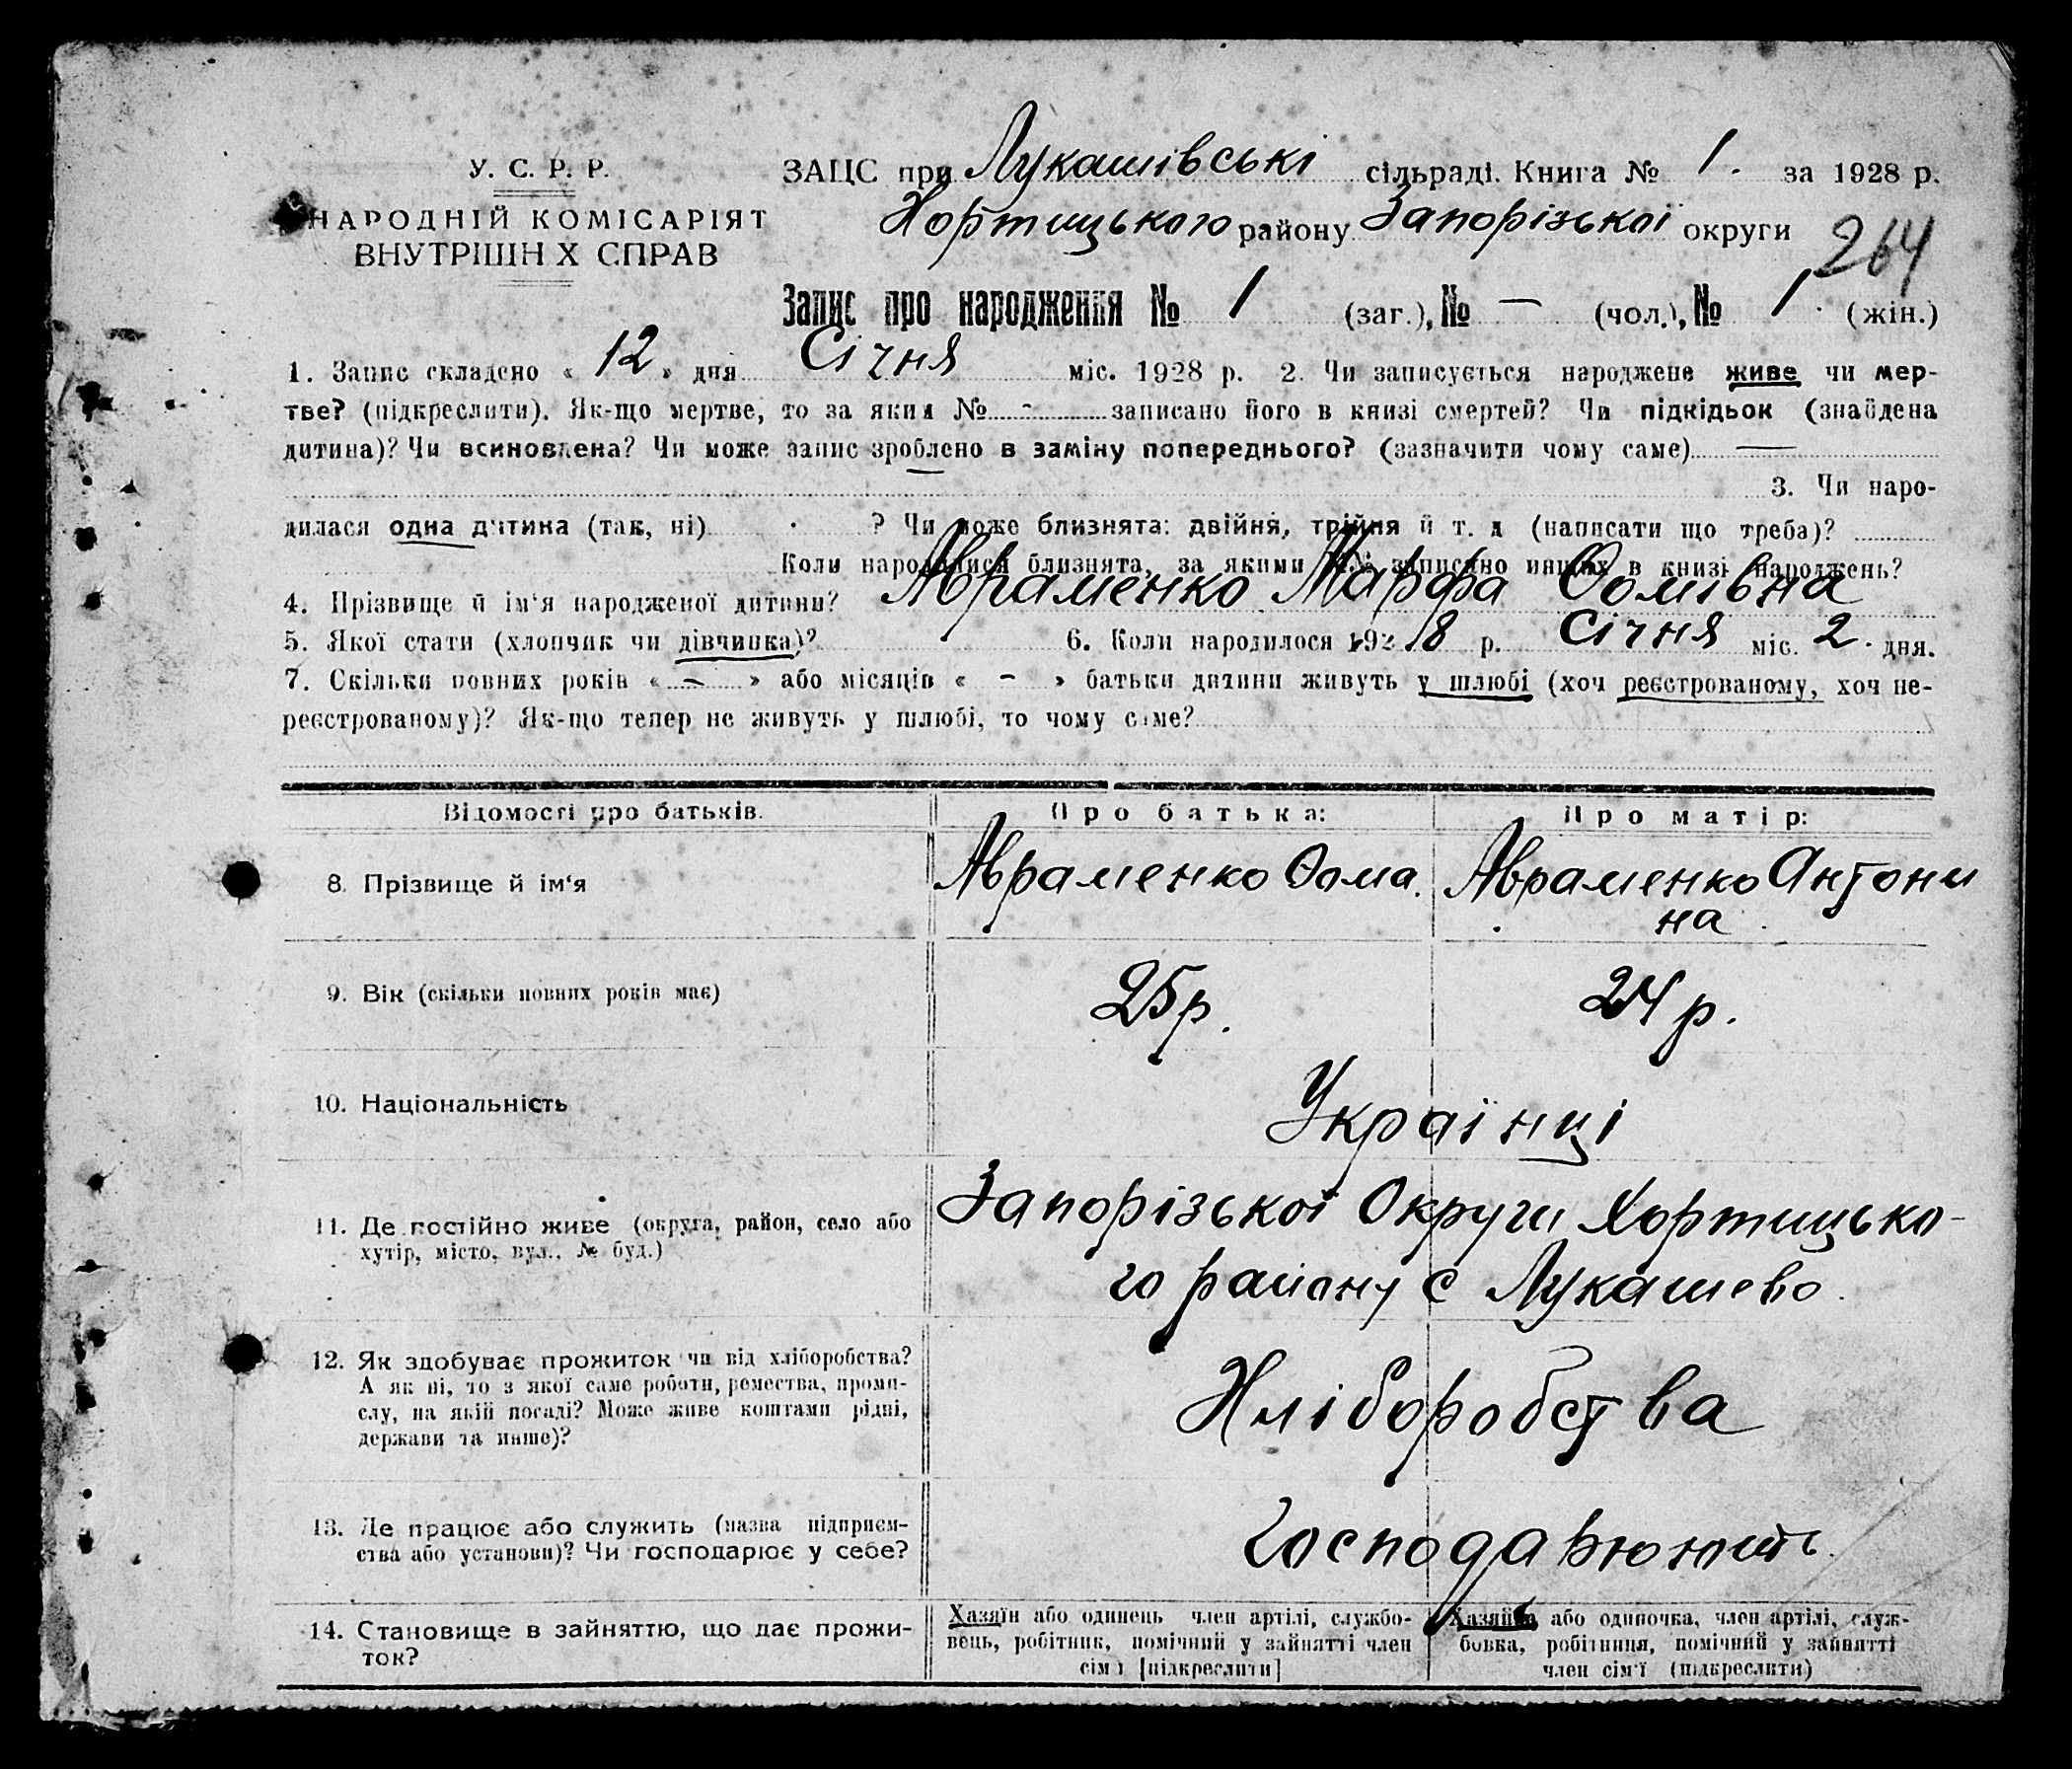 У. С. Р. Р.
НАРОДНІЙ КОМІСАРІЯТ
ВНУТРІШН Х СПРАВ
ЗАЦС при Лукашівські сільраді. Книга № 1. за 1928 р.
Хортицького району Запорізької округи
264
Запис про народження № 1 (заг.), № — (чол.), № 1. (жін.)
1. Запис складено « 12 » дня Січня міс. 1928 р. 2. Чи записується народжене живе чи мер-
тве? (підкреслити). Як-що мертве, то за яким № - записано його в книзі смертей? Чи підкідьок (знайдена
дитина)? Чи всиновлена? Чи може запис зроблено в заміну попереднього? (зазначити чому саме) —
3. Чи наро-
дилася одна дитина (так, ні) ? Чи може близнята: двійня, трійня й т. д (написати що треба)?
Коли народилися близнята, за якими №№ записано инших в книзі народжень?
4. Прізвище й ім'я народженої дитини? Авраменко Марфа Ѳомівна
5. Якої стати (хлопчик чи дівчинка)? 6. Коли народилося 1928 р. Січня міс. 2. дня.
7. Скільки повних років « — » або місяців « - » батьки дитини живуть у шлюбі (хоч реєстрованому, хоч не-
реєстрованому)? Як-що тепер не живуть у шлюбі, то чому саме?
Відомості про батьків. Про батька: Про матір:
8. Прізвище й ім'я Авраменко Ѳома. Авраменко Антони
на
9. Вік (скільки повних років має) 25 р. 24 р.
10. Національність Українці
11. Де постійно живе (округа, район, село або
хутір, місто, вул., № буд.)
Запорізької Округи Хортицько-
го району с Лукашево.
12. Як здобуває прожиток чи від хліборобства?
А як ні, то з якої саме роботи, ремества, проми-
слу, на якій посаді? Може живе коштами рідні,
держави та инше)?
Хліборобства
13. Де працює або служить (назва підприєм-
ства або установи)? Чи господарює у себе?
Господарюють.
14. Становище в зайняттю, що дає прожи-
ток?
Хазяїн або одинець член артілі, службо-
вець, робітник, помічний у зайнятті член
сім'ї [підкреслити]
Хазяйка або одиночка, член артілі, служ-
бовка, робітниця, помічний у зайнятті
член сім'ї (підкреслити)